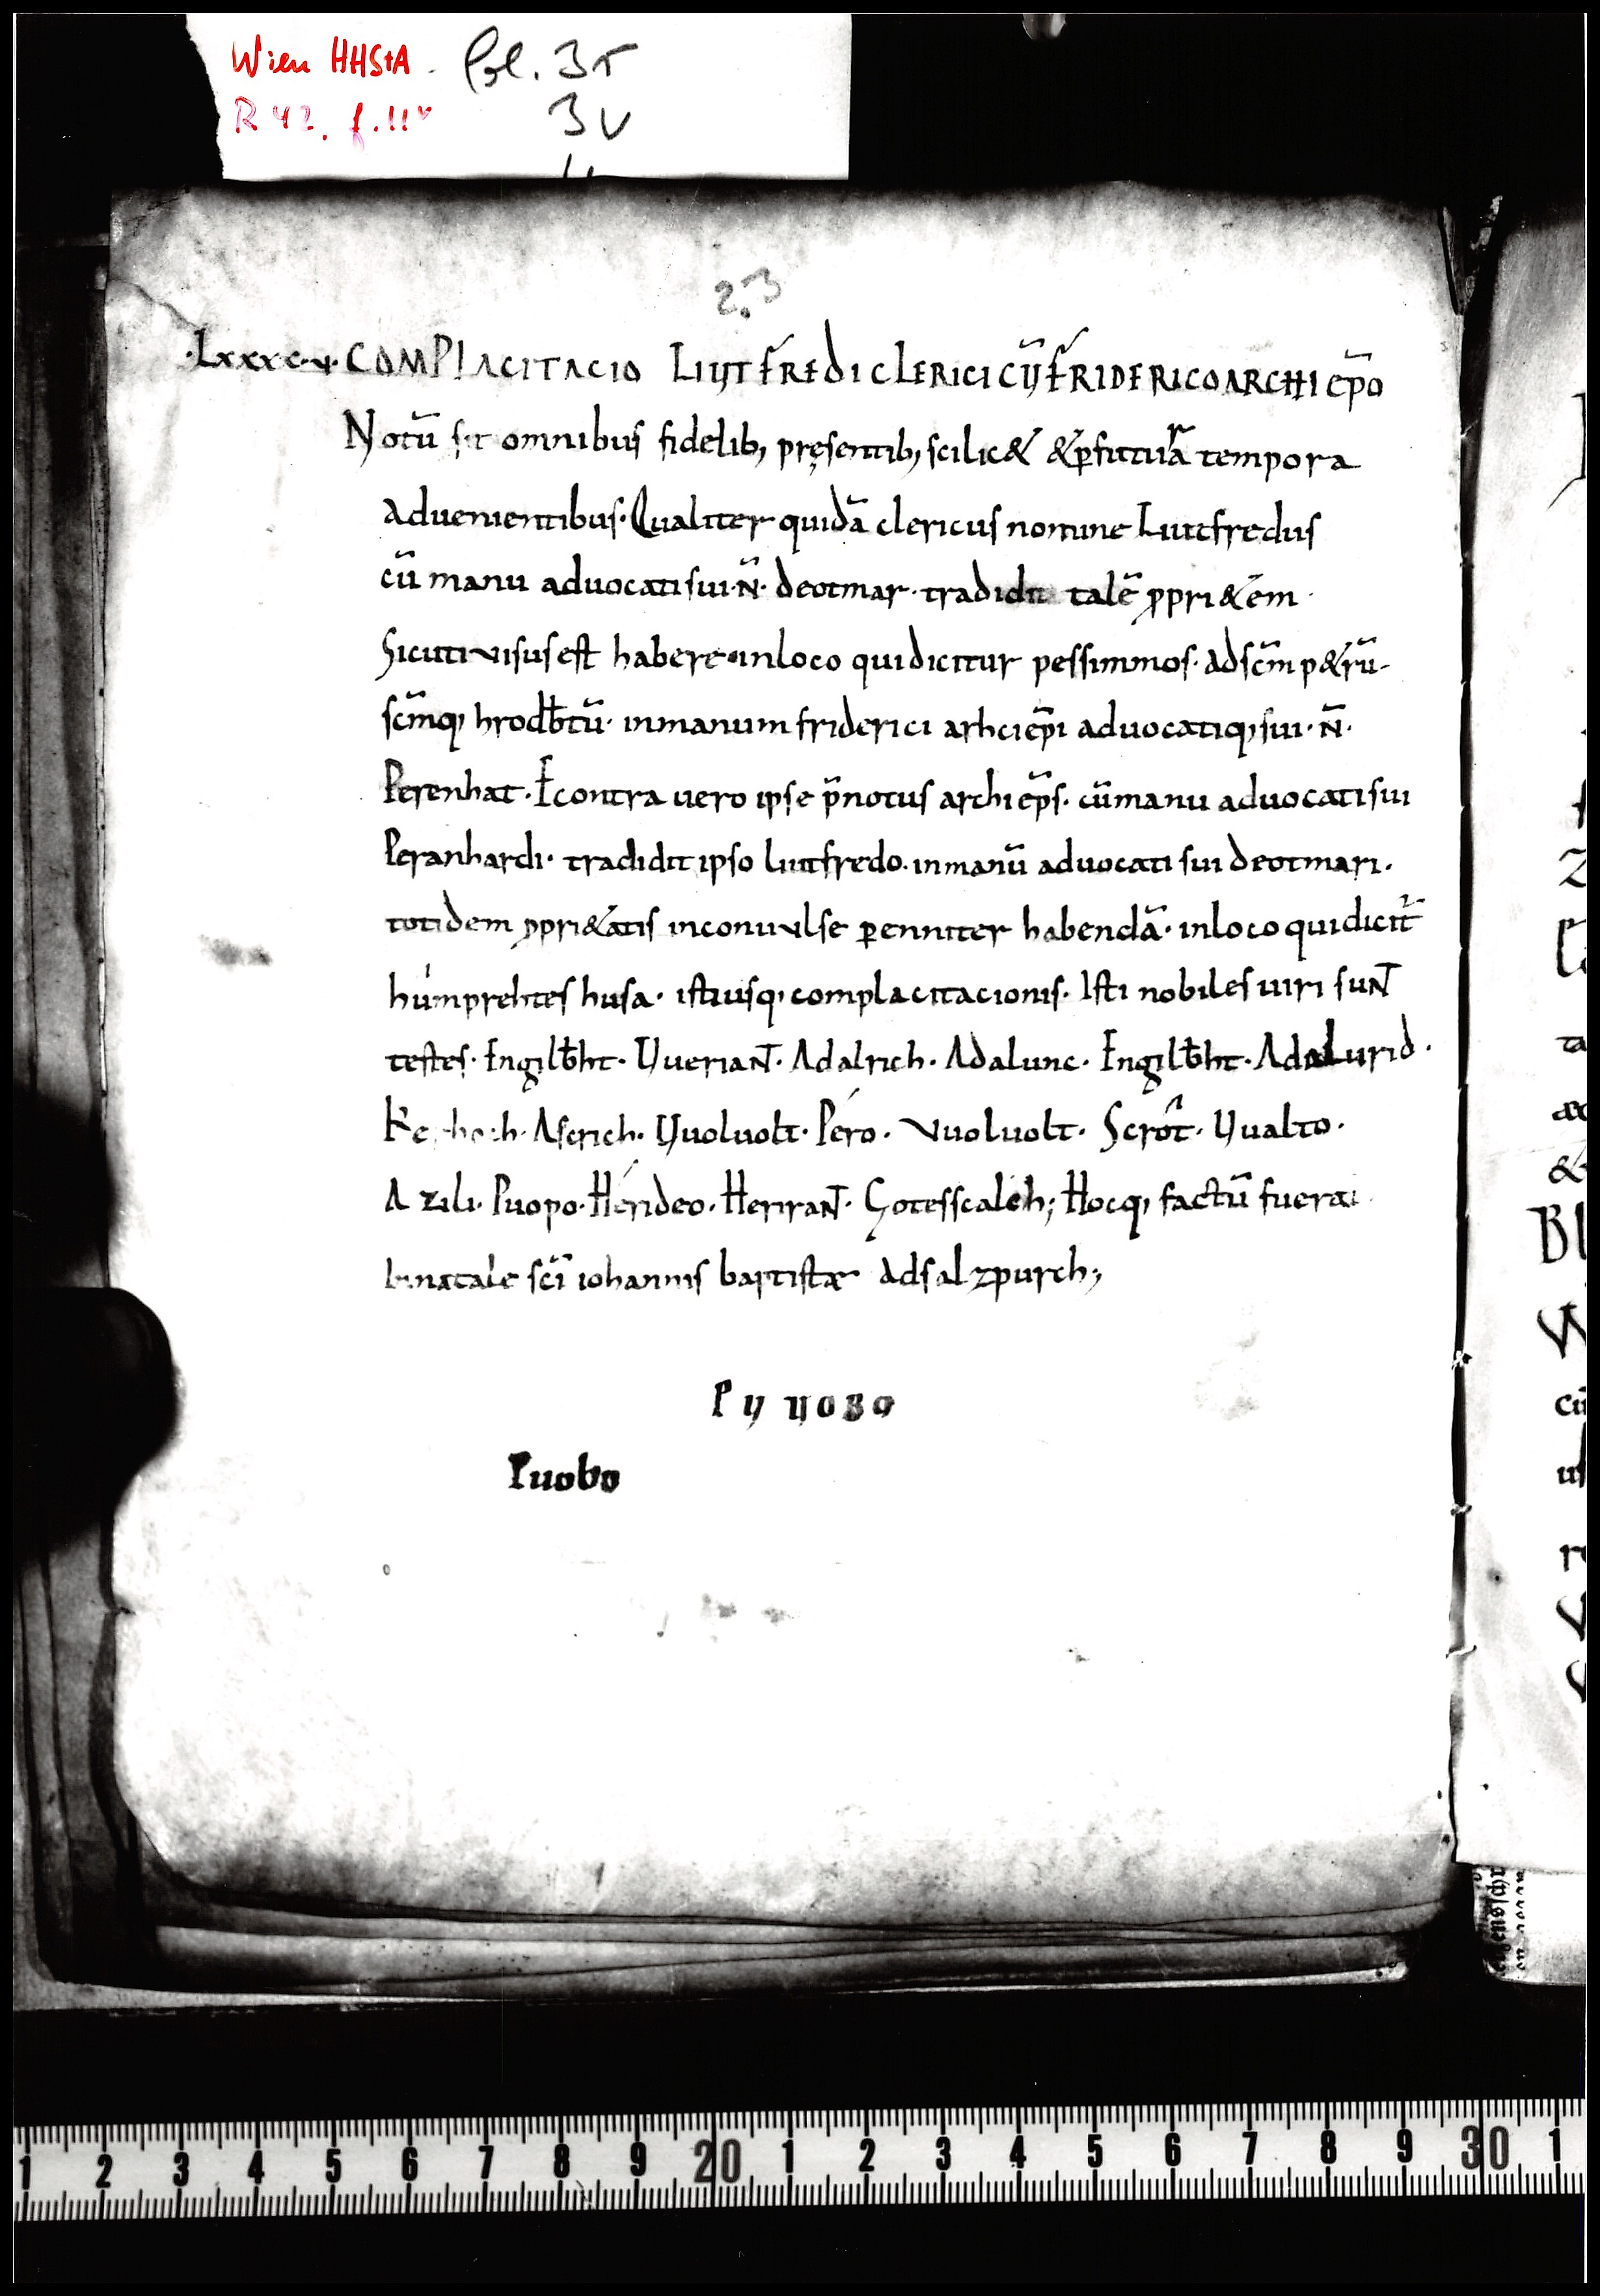 Wien HHStA. fol. 3r
R 42. f. 11v 3v
23
·Lxxxc·v· COMPLACITACIO LIUTFREDI CLERICI CŪ FRIDERICO ARCHIEP̄O
Notū sit omnibus fidelib; pręsentib; scilic& &ꝑ futura tempora
aduenientibus· Qualiter quidā clericus nomine Liutfredus
cū manu aduocati sui·N̄· deotmar· tradidit talē ꝓpri&ēm·
Sicuti visus est habere in loco qui dicitur pessimmos· ad scm̄ p&rū·
scm̄q; hrodb̄tū· in manum friderici arhciep̄i aduocatiq; sui·N̄·
Perenhat· Econtra uero ipse p̄notus archiep̄s· cū manu aduocati sui
Peranhardi· tradidit ipso liutfredo· in manū aduocati sui deotmari·
totidem ꝓpri&atis inconuulse ꝑenniter habendā· in loco qui dicit̄
húmprehtes husa· istiusq; complacitacionis· Isti nobiles uiri suNT
testes· Engilb̄ht· UueriaNT· Adalrich· Adalunc· Engilb̄ht· Adalurid·
Aserich· Uuoluolt· Péro· Vuoluolt· Scrôt· Uualto·
Azili· Puopo· Hérideo· HeriraNT· Gotesscalch; Hocq; factū fuerat
In natale sc̄i iohannis baptistæ ad salzpurch;
PUUOBO
Puobo
1 2 3 4 5 6 7 8 9 20 1 2 3 4 5 6 7 8 9 30 1